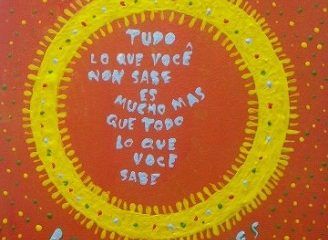 TUDO
LO QUE VOCÊ
NON SABE
ES
MUCHO MAS
QUE TODO
LO QUE
VOCE
SABE